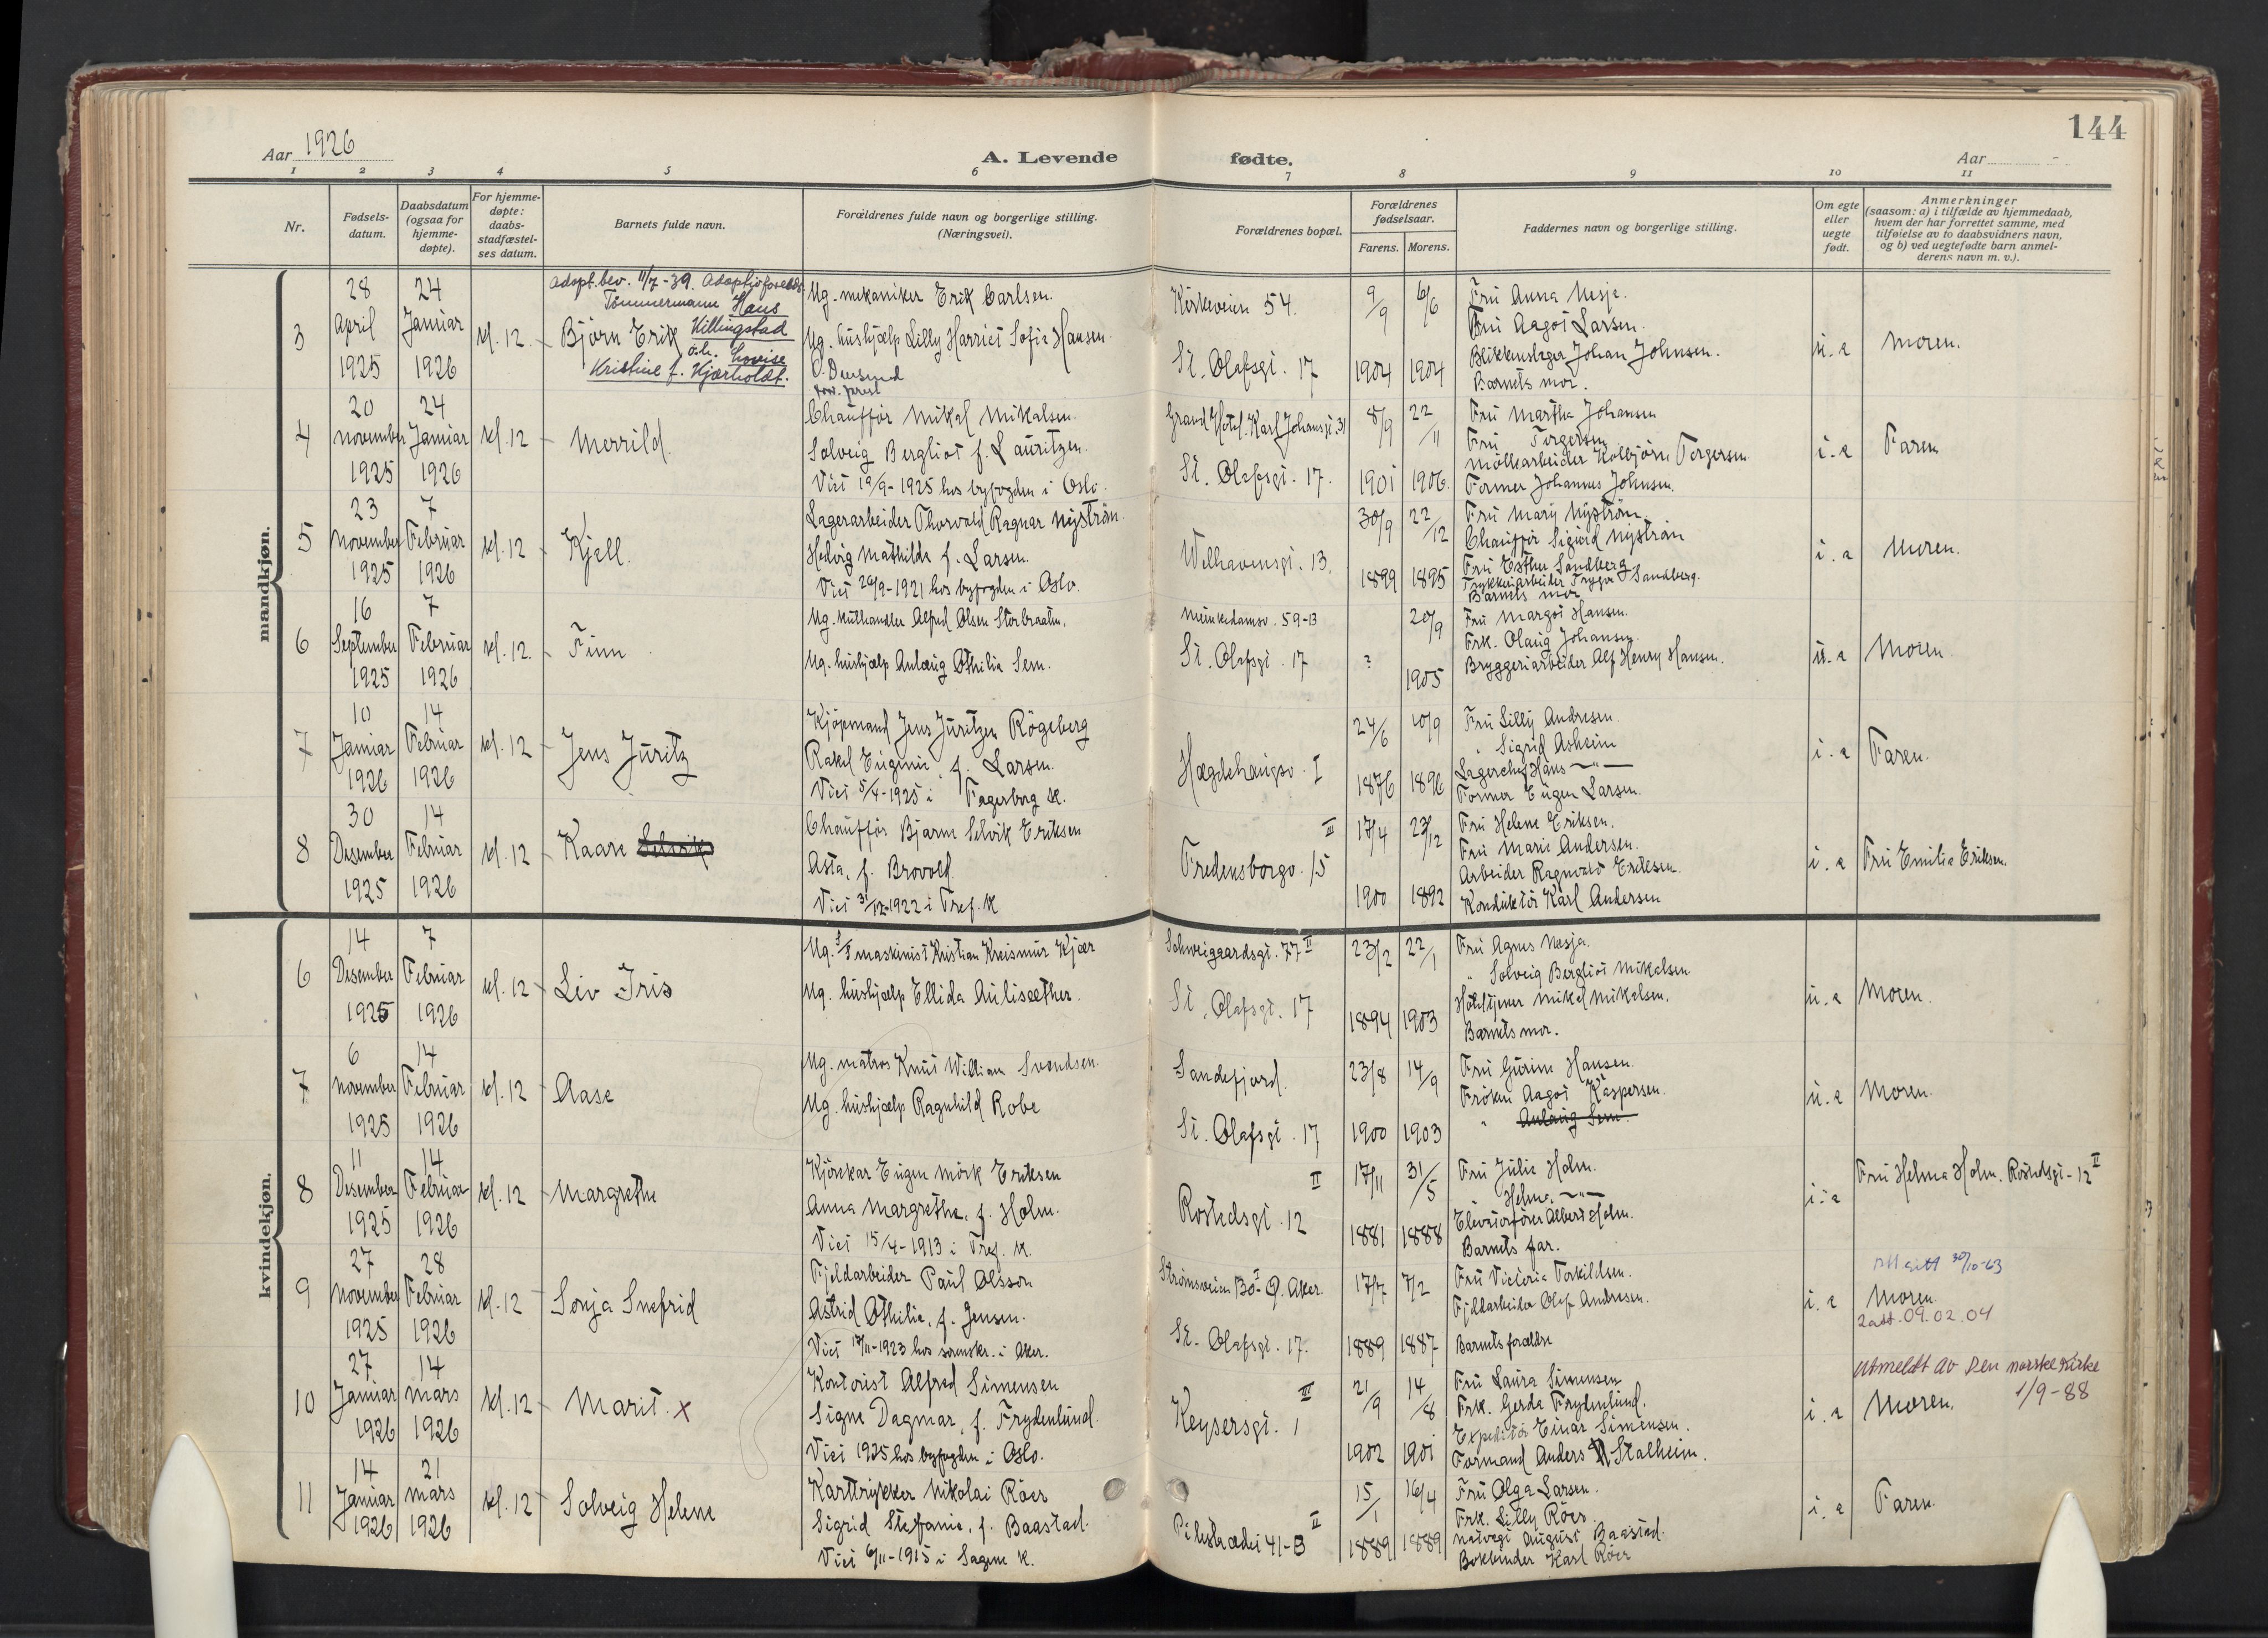 144
Aar 1926
A. Levende fødte.
Aar
1 2 3 4 5 6 7 8 9 10 11
Nr.
Fødsels-
datum.
Daabsdatum
(ogsaa for
hjemme-
døpte).
For hjemme-
døpte:
daabs-
stadfæstel-
ses datum.
Barnets fulde navn.
Forældrenes fulde navn og borgerlige stilling.
(Næringsvei).
Forældrenes bopæl.
Forældrenes
fødselsaar.
Farens. Morens.
Faddernes navn og borgerlige stilling.
Om egte
eller
uegte
født.
Anmerkninger
(saasom: a) i tilfælde av hjemmedaab,
hvem der har forrettet samme, med
tilføielse av to daabsvidners navn,
og b) ved uegtefødte barn anmel-
derens navn m. v.).
mandkjøn.
3
28
April
1925
24
Januar
1926
kl. 12.
Adopt.bev. 11/7-39. Adoptivforeldre
Tömmermann Hans
Björn Erik Killingstad
Lovise
Kristine f. Kjærholdt.
Ug. mekaniker Erik Carlsen.
Ug. hushjælp Lilly Harriet Sofie Hansen.
Kirkeveien 54.
St. Olafsgt. 17
9/9
1904
6/6
1904
Fru Anna Nesje.
Fru Aagot Larsen.
Blikkenslager Johan Johnsen.
Barnets mor.
u. e
Moren.
4
20
November
1925
24
Januar
1926
kl. 12
Merrild.
Chauffør Mikal Mikalsen.
Solveig Bergliot f. Lauritzen.
Viet 19/9-1925 hos byfogden i Oslo.
Grand Hotel. Karl Johansgt. 31
St. Olafsgt. 17.
8/9
1901
22/11
1906.
Fru Martha Johansen
Fru Torgersen
Möllearbeider Kolbjörn Torgersen
Former Johannes Johnsen.
i. e
Faren
5
23
November
1925
7
Februar
1926
kl. 12
Kjell.
Lagerarbeider Thorvald Ragnar Nyström.
Hedvig Mathilde f. Larsen.
Viet 20/9-1921 hos byfogden i Oslo.
Welhavensgt. 13.
30/9
1899
22/12
1895
Fru Mary Nyström.
Chauffør Sigurd Nyström
Fru Esther Sandberg
Trykkeriarbeider Trygve Sandberg.
Barnets mor
i. e
Moren.
6
16
September
1925
7
Februar
1926
kl. 12.
Finn
Ug. Alfred Olsen Storbraaten.
Ug. hushjælp Anlaug Othilie Sem.
Munkedamsv. 59-B
St. Olafsgt. 17
?
20/9
1905
Fru Margot Hansen.
Frk. Olaug Johansen.
Bryggeriarbeider Alf Henry Hansen.
u. e
Moren.
7
10
Januar
1926
14
Februar
1926
kl. 12
Jens Juritz
Kjöpmand Jens Juritzen Rögeberg
Rakel Eugenie, f. Larsen.
Viet 5/4-1925 i Fagerborg k.
Hægdehaugsv. I
24/6
1876
10/9
1896
Fru Lilly Andresen.
" Sigrid Asheim
Lagerchef Hans —"—
Former Eugen Larsen.
i. e
Faren.
8
30
Desember
1925
14
Februar
1926
kl. 12
Kaare Selvik
Chauffør Bjarne Selvik Eriksen
Asta, f. Brovold.
Viet 31/12-1922 i Tref. k
III
Fredensborgv. 15
17/4
1900
23/12
1892
Fru Helene Eriksen.
Fru Marie Andersen.
Arbeider Ragnvald Eriksen.
Konduktör Karl Andersen
i. e
Fru Emilie Eriksen.
kvindekjøn.
6
14
Desember
1925
7
Februar
1926
kl. 12
Liv Iris
Ug. maskinist Kristian Kjær
Ug. hushjælp Ellida Aulisæther.
Schweigaardsgt. 77 II
St. Olafsgt. 17
23/2
1894
22/1
1903
Fru Agnes Nesje.
" Solveig Bergliot Mikalsen.
Hoteltjener Mikal Mikalsen.
Barnets mor.
u. e
Moren.
7
6
November
1925
14
Februar
1926
kl. 12
Aase
Ug. matros Knut William Svendsen.
Ug. hushjælp Ragnhild Robe
Sandefjord.
St. Olafsgt. 17
23/8
1900
14/9
1903
Fru Gurine Hansen.
Fröken Aagot Kaspersen.
" Anlaug Sem.
u. e
Moren.
8
11
Desember
1925
14
Februar
1926
kl. 12
Margrethe
Kjörekar Eugen Mörk Eriksen
Anna Margrethe, f. Holm.
Viet 15/4-1913 i Tref. k.
II
Rostedsgt. 12
17/11
1881
31/5
1888
Fru Julie Holm.
" Helma —"—
Elevatorförer Albert Holm.
Barnets far.
i. e
Fru Helma Holm. Rostedsgt-12 II
9
27
November
1925
28
Februar
1926
kl. 12
Sonja Snefrid
Fjeldarbeider Paul Olsson
Astrid Othilie, f. Jensen.
Viet 17/11-1923 hos sorenskr. i Aker.
Strömsveien Ö. Aker.
St. Olafsgt. 17.
17/7
1889
7/2
1887
Fru Victoria Torkildsen.
Fjeldarbeider Olaf Andresen.
Barnets forældre
i. e
Att gitt 30/10-63
Moren.
2 att. 09.02.04
10
27
Januar
1926
14
Mars
1926
kl. 12
Marit. x
Kontorist Alfred Simensen
Signe Dagmar, f. Frydenlund.
Viet 1925 hos byfogden i Oslo.
III
Keysersgt. 1
21/9
1902
14/8
1901
Fru Laura Simensen
Frk. Gerda Frydenlund.
Expeditör Einar Simensen.
Formand Anders Stalheim.
i. e
Utmeldt av Den norske kirke
1/9-88
Moren.
11
14
Januar
1926
21
Mars
1926
kl. 12
Solveig Helene
Karttrykker Nikolai Röer
Sigrid Stefanie, f. Baastad.
Viet 6/11-1915 i Sagene k.
II
Pilestrædet 41-B
15/1
1889
16/4
1889
Fru Olga Larsen.
Frk. Lilly Röer.
August Baastad.
Bokbinder Karl Röer
i. e
Faren.